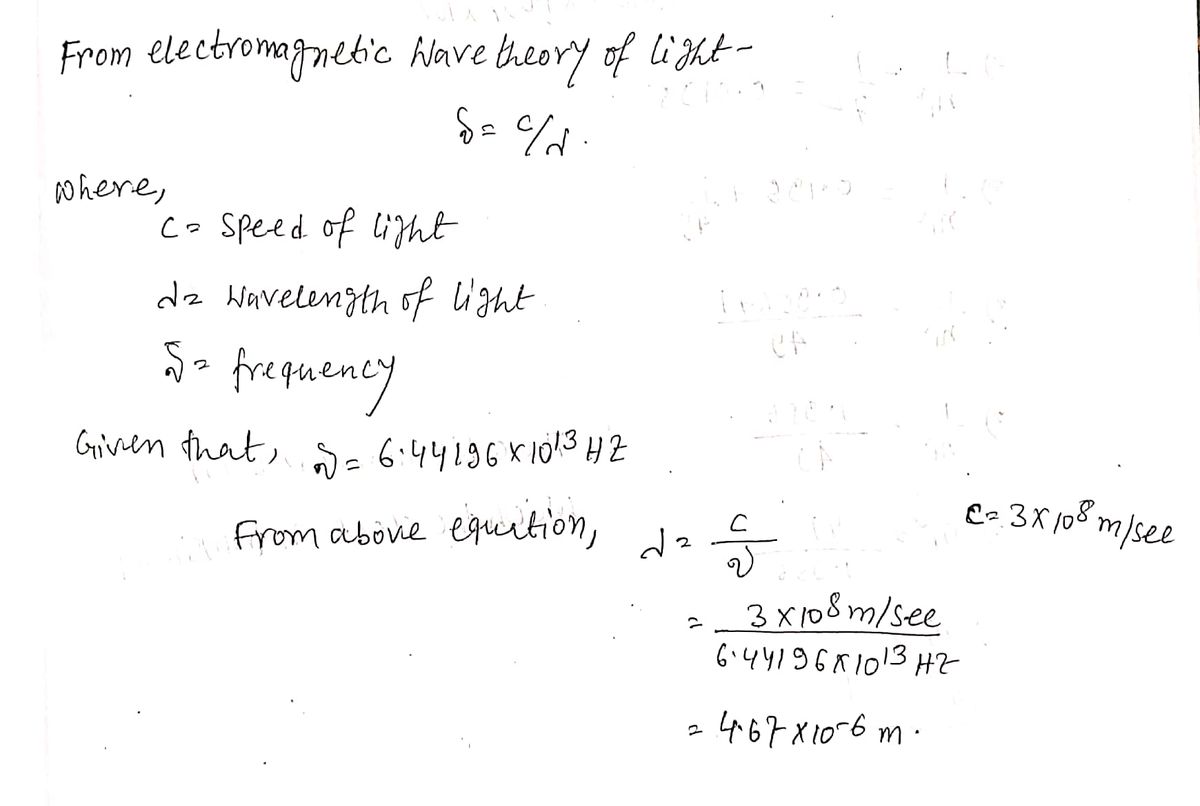 From electromagnetic wave theory of light-
ν = c/λ.
where,
c = speed of light
λ = wavelength of light
ν = frequency
Given that, ν = 6.44196 × 10^13 HZ
From above equation, λ = c/ν    c = 3 × 10^8 m/sec
= 3 × 10^8 m/sec / 6.44196 × 10^13 HZ
= 4.67 × 10^-6 m.